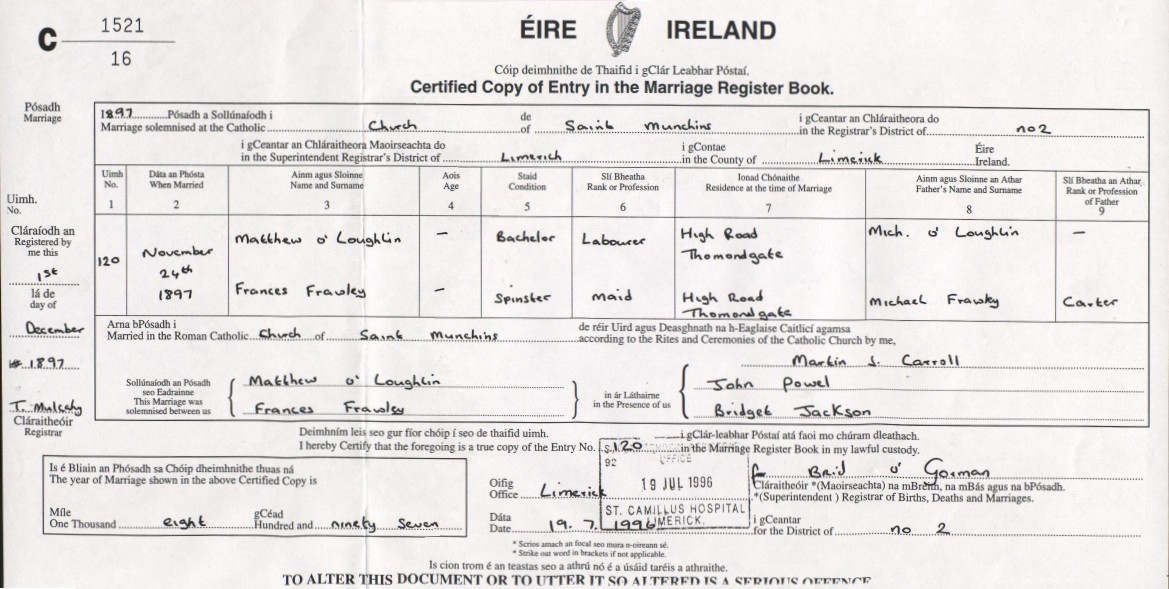 C 1521
16
ÉIRE IRELAND
Cóip deimhnithe de Thaifid i gClár Leabhar Póstaí.
Certified Copy of Entry in the Marriage Register Book.
Pósadh
Marriage
1897 Pósadh a Sollúnaíodh i de i gCeantar an Chláraitheora do
Marriage solemnised at the Catholic Church of Saint Munchins in the Registrar's District of no 2
i gCeantar an Chláraitheora Maoirseachta do i gContae Éire
in the Superintendent Registrar's District of Limerick in the County of Limerick Ireland.
Uimh. No.
Uimh No. 1
Dáta an Phósta When Married 2
Ainm agus Sloinne Name and Surname 3
Aois Age 4
Staid Condition 5
Slí Bheatha Rank or Profession 6
Ionad Chónaithe Residence at the time of Marriage 7
Ainm agus Sloinne an Athar Father's Name and Surname 8
Slí Bheatha an Athar Rank or Profession of Father 9
120 November 24th 1897
Matthew o' Loughlin – Bachelor Labourer High Road Thomondgate Mich. o' Loughlin –
Frances Frawley – Spinster maid High Road Thomondgate Michael Frawley Carter
Cláraíodh an
Registered by
me this
1st
lá de
day of
December
1897
T. Mulcahy
Cláraitheóir
Registrar
Arna bPósadh i de réir Uird agus Deasghnath na h-Eaglaise Caitlicí agamsa
Married in the Roman Catholic Church of Saint Munchins according to the Rites and Ceremonies of the Catholic Church by me,
Martin J. Carroll
Sollúnaíodh an Pósadh
seo Eadrainne
This Marriage was
solemnised between us
Matthew o' Loughlin
Frances Frawley
in ár Láthairne
in the Presence of us
John Powel
Bridget Jackson
Deimhním leis seo gur fíor chóip í seo de thaifid uimh. i gClár-leabhar Póstaí atá faoi mo chúram dleathach.
I hereby Certify that the foregoing is a true copy of the Entry No. 120 in the Marriage Register Book in my lawful custody.
Is é Bliain an Phósadh sa Chóip dheimhnithe thuas ná
The year of Marriage shown in the above Certified Copy is
Míle gCéad
One Thousand eight Hundred and ninety Seven
Oifig
Office Limerick
Dáta
Date 19. 7. 1996
92 OFFICE
19 JUL 1996
ST. CAMILLUS HOSPITAL
LIMERICK.
Brid o' Gorman
Cláraitheóir *(Maoirseachta) na mBreith, na mBás agus na bPósadh.
*(Superintendent ) Registrar of Births, Deaths and Marriages.
i gCeantar
for the District of no 2
* Scrios amach an focal seo mura n-oireann sé.
* Strike out word in brackets if not applicable.
Is cion trom é an teastas seo a athrú nó é a úsáid taréis a athraithe.
TO ALTER THIS DOCUMENT OR TO UTTER IT SO ALTERED IS A SERIOUS OFFENCE